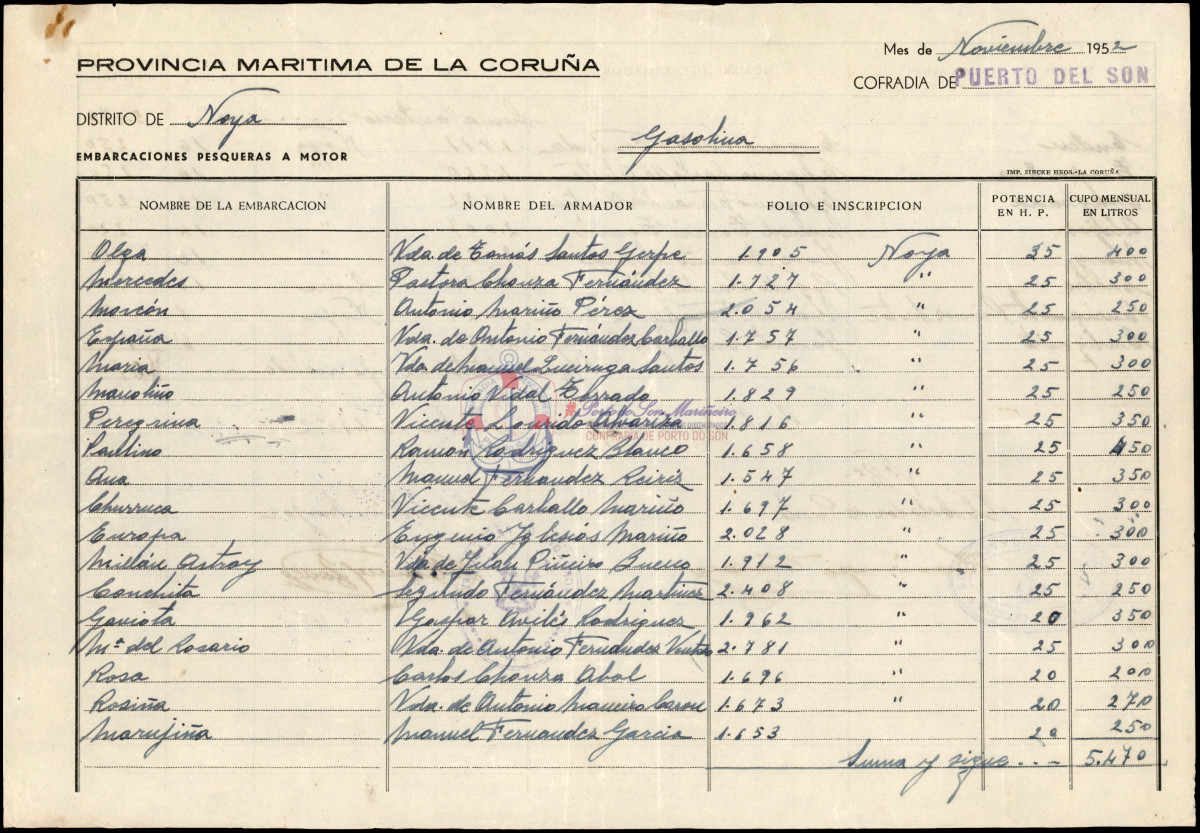 Mes de Noviembre 1952
PROVINCIA MARITIMA DE LA CORUÑA
COFRADIA DE PUERTO DEL SON
DISTRITO DE Noya
Gasolina
EMBARCACIONES PESQUERAS A MOTOR
IMP. ZINCKE HNOS.-LA CORUÑA
NOMBRE DE LA EMBARCACION NOMBRE DEL ARMADOR FOLIO E INSCRIPCION POTENCIA EN H. P. CUPO MENSUAL EN LITROS
Olga Vda. de Tomás Santos Gerpe 1.905 Noya 35 400
Mercedes Pastora Chouza Fernández 1.727 " 25 300
Morcón Antonio Mariño Pérez 2.054 " 25 250
España Vda. de Antonio Fernández Carballo 1.757 " 25 300
Maria Vda. de Manuel Queiruga Santos 1.756 " 25 300
Manoliño Antonio Vidal 1.829 " 25 250
Peregrina Vicente Lourido 1.816 " 25 350
# Porto do Son Mariñeiro
CONFRARÍA DE PORTO DO SON
Paulino Ramón Rodriguez Blanco 1.658 " 25 450
Ana Manuel Fernandez Reiriz 1.547 " 25 350
Churruca Vicente Carballo Mariño 1.697 " 25 300
Europa Eugenio Yglesias Mariño 2.028 " 25 300
Millán Astray Vda. de Juan Piñeiro 1.912 " 25 300
Conchita Segundo Fernández Martinez 2.408 " 25 250
Gaviota Gaspar Avilés Rodriguez 1.962 " 20 350
Mª del Rosario Vda. de Antonio Fernández 2.781 " 25 300
Rosa Carlos Chouza Abal 1.696 " 20 200
Rosiña Vda. de Antonio Maneiro 1.673 " 20 270
Marujiña Manuel Fernandez Garcia 1.653 20 250
Suma y sigue . -- 5.470